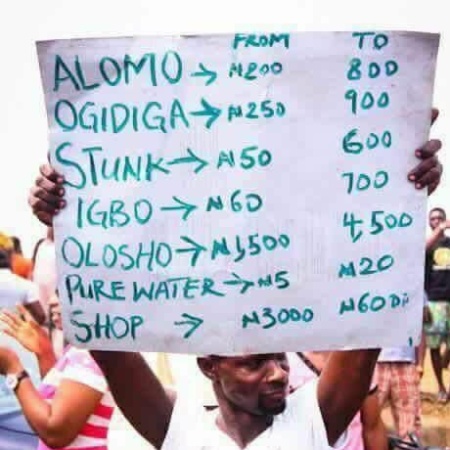 FROM TO
ALOMO → ₦200 800
OGIDIGA → ₦250 900
STUNK → ₦50 600
IGBO → ₦60 700
OLOSHO → ₦1,500 4,500
PURE WATER → ₦5 ₦20
SHOP → ₦3000